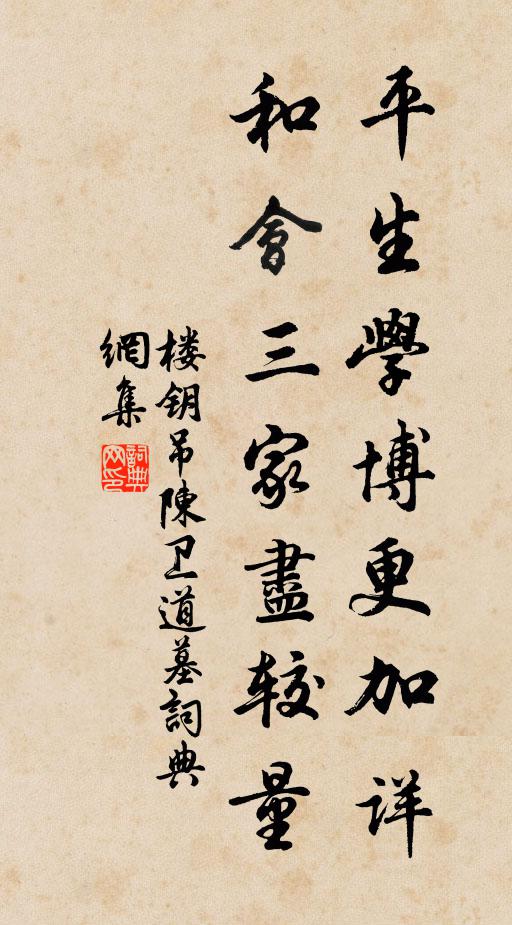 平生學博更加详
和會三家盡較量
楼钥吊陳卫道墓詞典
網集
詞典网印